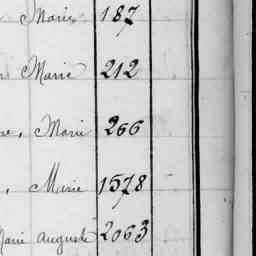 Marie 187
Marie 212
Marie 266
Marie 1578
Marie Auguste 2063